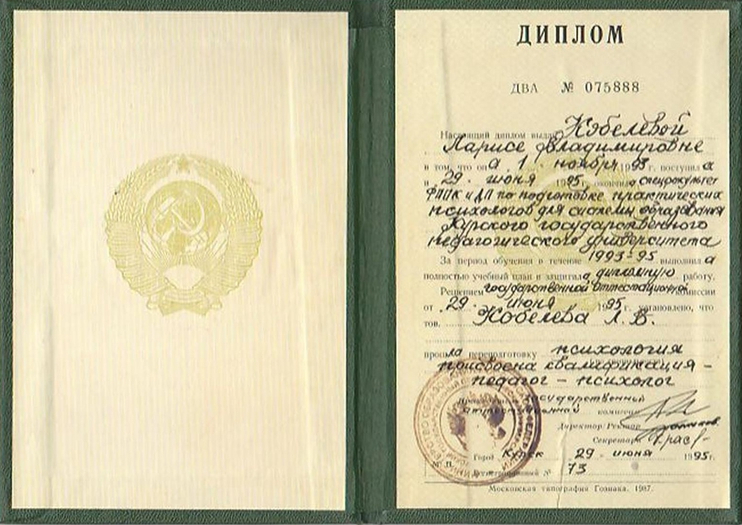 ДИПЛОМ
ДВА № 075888
Настоящий диплом выдан Кобелевой
Ларисе Владимировне
в том, что он а 1 ноября 1993 поступил а
и 29 июня 1995 окончил а спецфакультет
ФППК и ДП по подготовке практических
психологов для системы образования
Курского государственного
педагогического университета
За период обучения в течение 1993-95 выполнил а
полностью учебный план и защитил а дипломную работу.
Решением государственной аттестационной комиссии
от 29 июня 1995 г. установлено, что
тов. Кобелева Л. В.
прошла переподготовку психология
присвоена квалификация -
педагог - психолог
Председатель государственный
аттестационной комиссии
Директор/Ректор
Секретарь
М. П. Город Курск 29 июня 1995 г.
Регистрационный № 73
Московская типография Гознака. 1987.